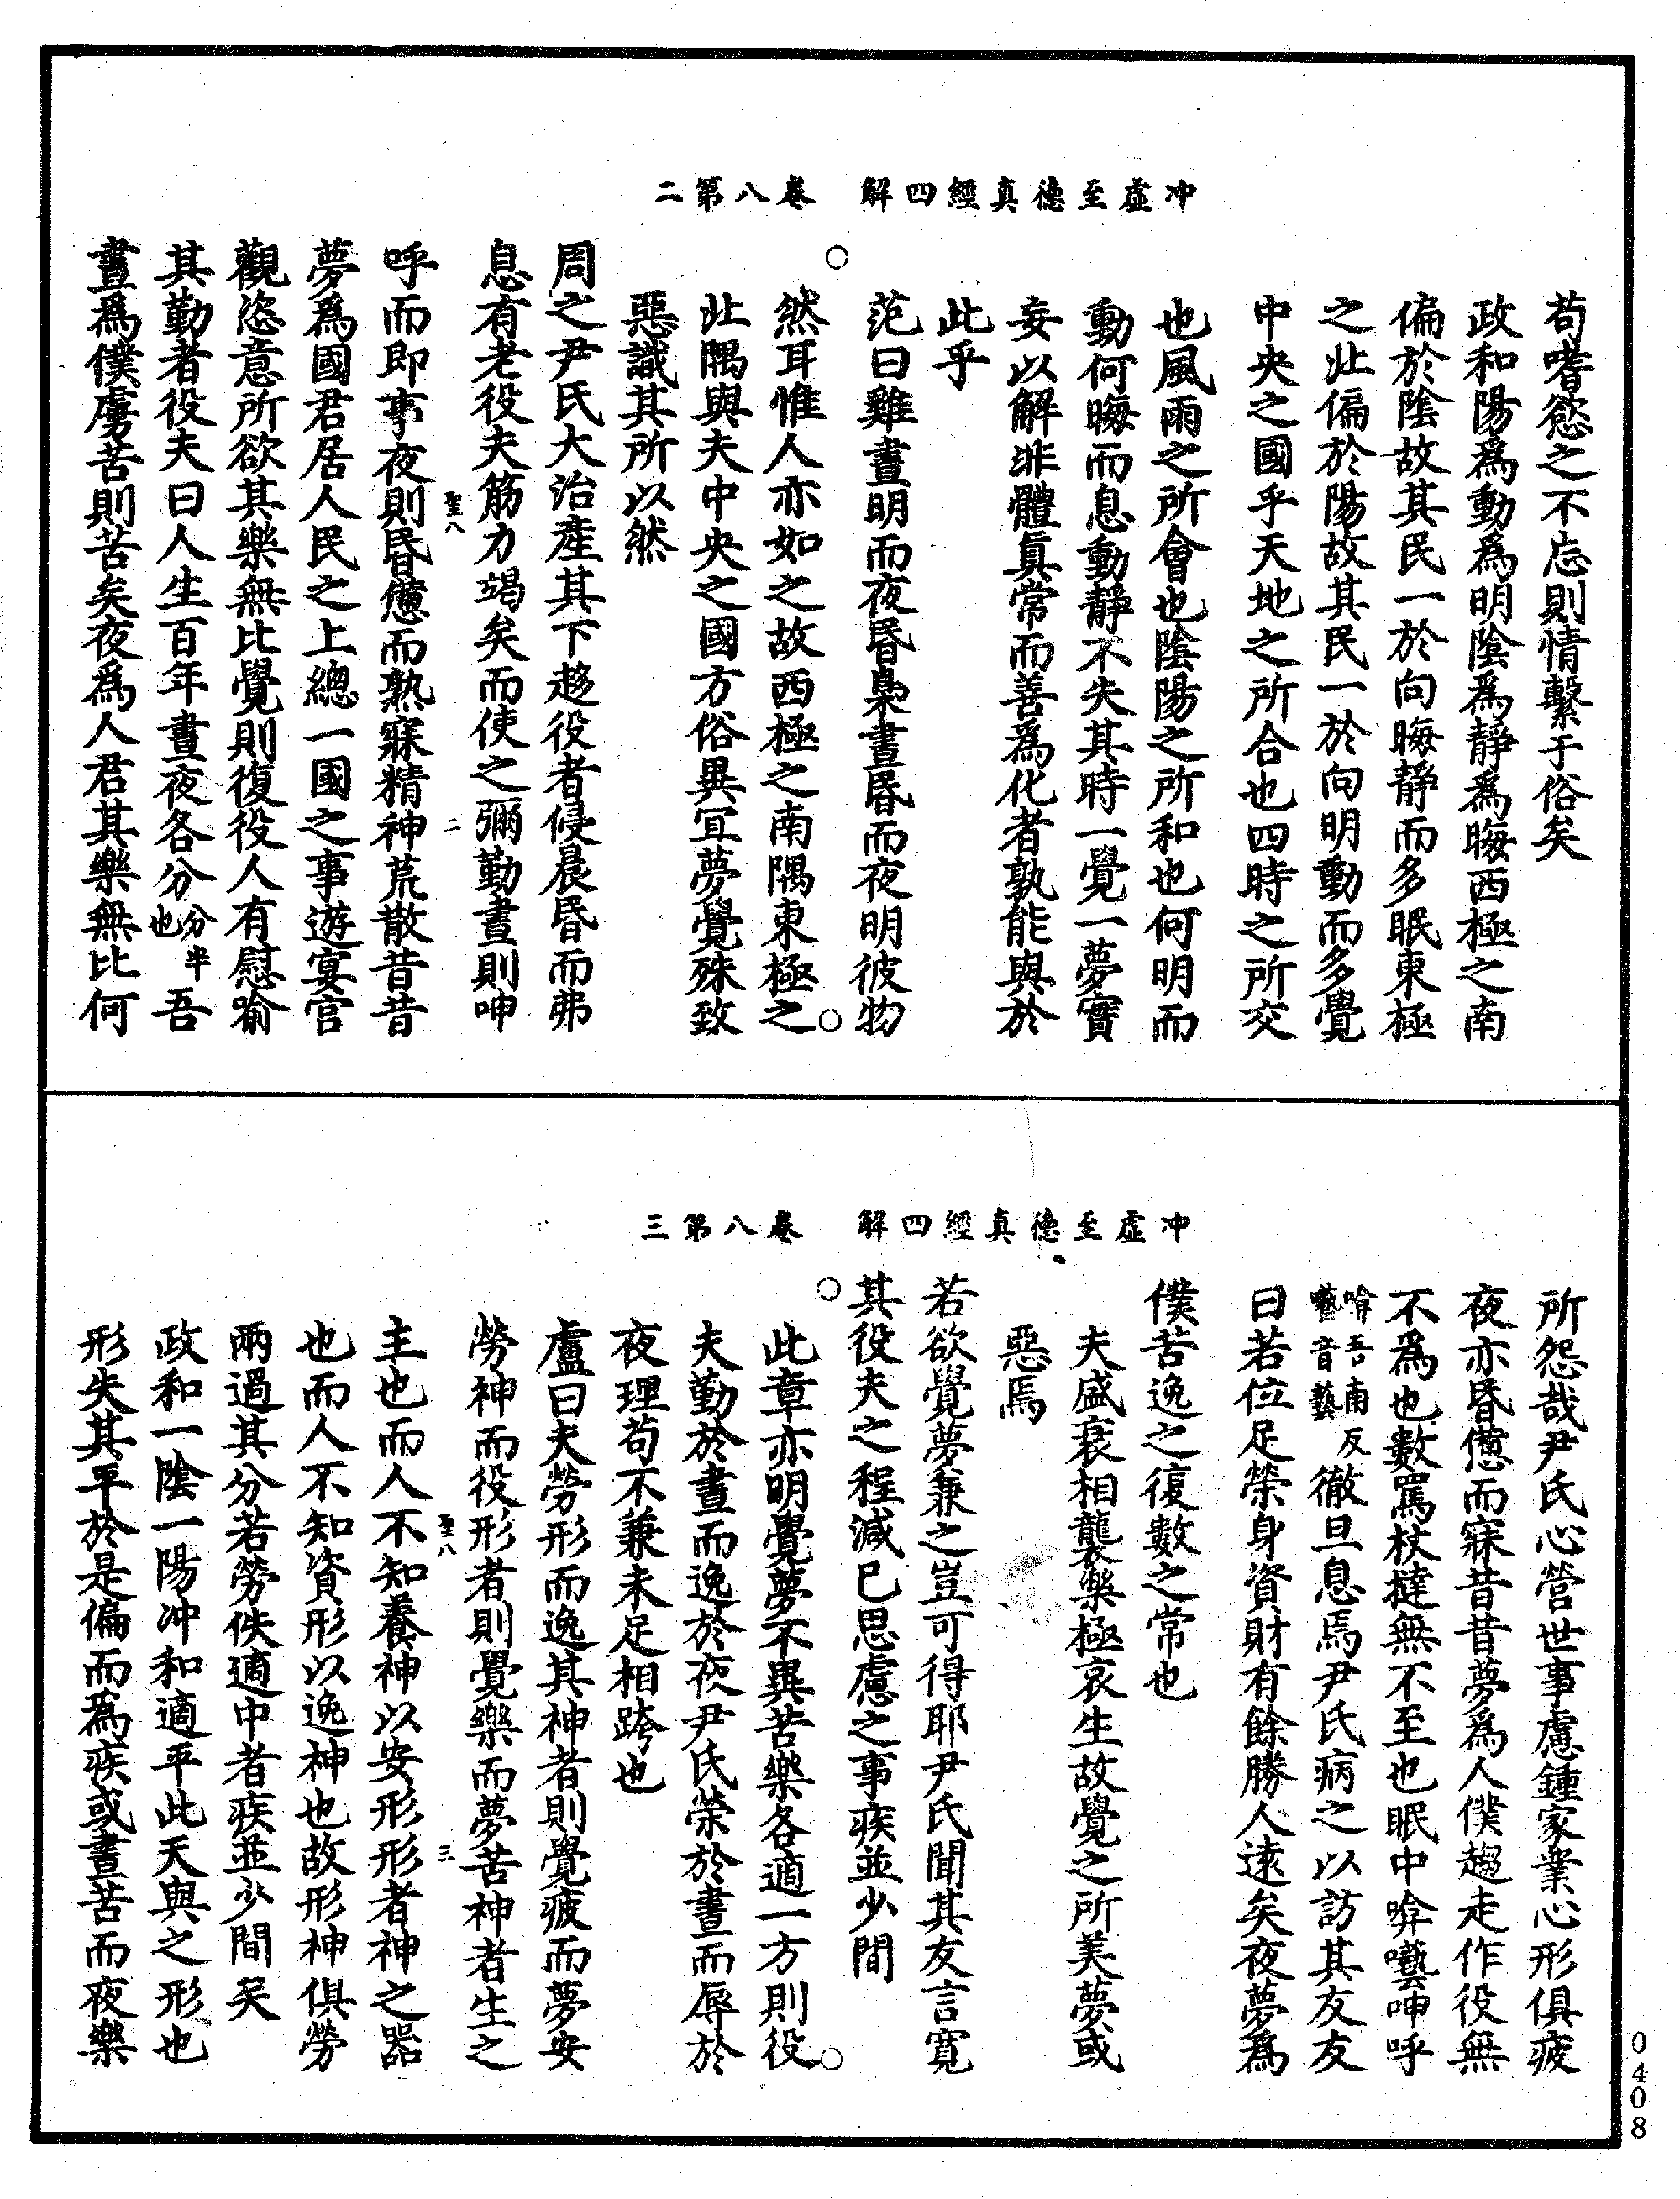 冲虛至德真經四解　卷八第二
苟嗜慾之不忘則情繫于俗矣
政和陽爲動爲明陰爲靜爲晦西極之南
偏於陰故其民一於向晦靜而多眠東極
之北偏於陽故其民一於向明動而多覺
中央之國乎天地之所合也四時之所交
也風雨之所會也陰陽之所和也何明而
動何晦而息動靜不失其時一覺一夢實
妄以解非體真常而善爲化者孰能與於
此乎
范曰雞晝明而夜昏梟晝昏而夜明彼物
○然耳惟人亦如之故西極之南隅東極之○
北隅與夫中央之國方俗異冝夢覺殊致
惡識其所以然
周之尹氏大治產其下趍役者侵晨昏而弗
息有老役夫筋力竭矣而使之彌勤晝則呻
聖八　二
呼而即事夜則昏憊而熟寐精神荒散昔昔
夢爲國君居人民之上總一國之事遊宴宮
觀恣意所欲其樂無比覺則復役人有慰喻
其勤者役夫曰人生百年晝夜各分分半也吾
晝爲僕虜苦則苦矣夜爲人君其樂無比何
冲虛至德真經四解　卷八第三
所怨哉尹氏心營世事慮鍾家業心形俱疲
夜亦昏憊而寐昔昔夢爲人僕趨走作役無
不爲也數罵杖撻無不至也眠中啽囈呻呼
啽吾南反囈音藝徹旦息焉尹氏病之以訪其友友
曰若位足榮身資財有餘勝人遠矣夜夢爲
僕苦逸之復數之常也
夫盛衰相襲樂極哀生故覺之所美夢或
惡焉
若欲覺夢兼之豈可得耶尹氏聞其友言寬
其役夫之程減已思慮之事疾並少間
○此章亦明覺夢不異苦樂各適一方則役○
夫勤於晝而逸於夜尹氏榮於晝而辱於
夜理苟不兼未足相跨也
盧曰夫勞形而逸其神者則覺疲而夢安
勞神而役形者則覺樂而夢苦神者生之
聖八　三
主也而人不知養神以安形形者神之器
也而人不知資形以逸神也故形神俱勞
兩過其分若勞佚適中者疾並少間矣
政和一陰一陽冲和適平此天與之形也
形失其平於是偏而爲疾或晝苦而夜樂
0408